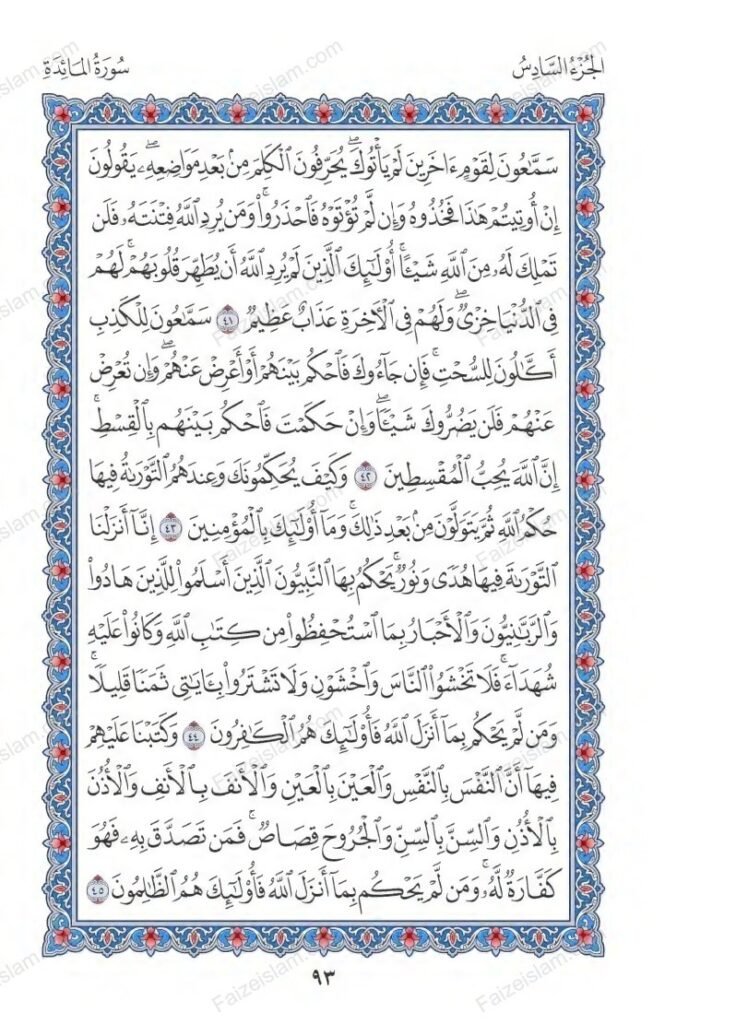 الجُزْءُ السَّادِسُ
سُورَةُ المَائِدَةِ
سَمَّٰعُونَ لِقَوْمٍ ءَاخَرِينَ لَمْ يَأْتُوكَۖ يُحَرِّفُونَ ٱلْكَلِمَ مِنۢ بَعْدِ مَوَاضِعِهِۦۖ يَقُولُونَ
إِنْ أُوتِيتُمْ هَٰذَا فَخُذُوهُ وَإِن لَّمْ تُؤْتَوْهُ فَٱحْذَرُوا۟ۚ وَمَن يُرِدِ ٱللَّهُ فِتْنَتَهُۥ فَلَن
تَمْلِكَ لَهُۥ مِنَ ٱللَّهِ شَيْـًٔاۚ أُو۟لَٰٓئِكَ ٱلَّذِينَ لَمْ يُرِدِ ٱللَّهُ أَن يُطَهِّرَ قُلُوبَهُمْۚ لَهُمْ
فِى ٱلدُّنْيَا خِزْىٌۖ وَلَهُمْ فِى ٱلْءَاخِرَةِ عَذَابٌ عَظِيمٌ ٤١ سَمَّٰعُونَ لِلْكَذِبِ
أَكَّٰلُونَ لِلسُّحْتِۚ فَإِن جَآءُوكَ فَٱحْكُم بَيْنَهُمْ أَوْ أَعْرِضْ عَنْهُمْۖ وَإِن تُعْرِضْ
عَنْهُمْ فَلَن يَضُرُّوكَ شَيْـًٔاۖ وَإِنْ حَكَمْتَ فَٱحْكُم بَيْنَهُم بِٱلْقِسْطِۚ
إِنَّ ٱللَّهَ يُحِبُّ ٱلْمُقْسِطِينَ ٤٢ وَكَيْفَ يُحَكِّمُونَكَ وَعِندَهُمُ ٱلتَّوْرَىٰةُ فِيهَا
حُكْمُ ٱللَّهِ ثُمَّ يَتَوَلَّوْنَ مِنۢ بَعْدِ ذَٰلِكَۚ وَمَآ أُو۟لَٰٓئِكَ بِٱلْمُؤْمِنِينَ ٤٣ إِنَّآ أَنزَلْنَا
ٱلتَّوْرَىٰةَ فِيهَا هُدًى وَنُورٌۚ يَحْكُمُ بِهَا ٱلنَّبِيُّونَ ٱلَّذِينَ أَسْلَمُوا۟ لِلَّذِينَ هَادُوا۟
وَٱلرَّبَّٰنِيُّونَ وَٱلْأَحْبَارُ بِمَا ٱسْتُحْفِظُوا۟ مِن كِتَٰبِ ٱللَّهِ وَكَانُوا۟ عَلَيْهِ
شُهَدَآءَۚ فَلَا تَخْشَوُا۟ ٱلنَّاسَ وَٱخْشَوْنِ وَلَا تَشْتَرُوا۟ بِـَٔايَٰتِى ثَمَنًا قَلِيلًاۚ
وَمَن لَّمْ يَحْكُم بِمَآ أَنزَلَ ٱللَّهُ فَأُو۟لَٰٓئِكَ هُمُ ٱلْكَٰفِرُونَ ٤٤ وَكَتَبْنَا عَلَيْهِمْ
فِيهَآ أَنَّ ٱلنَّفْسَ بِٱلنَّفْسِ وَٱلْعَيْنَ بِٱلْعَيْنِ وَٱلْأَنفَ بِٱلْأَنفِ وَٱلْأُذُنَ
بِٱلْأُذُنِ وَٱلسِّنَّ بِٱلسِّنِّ وَٱلْجُرُوحَ قِصَاصٌۚ فَمَن تَصَدَّقَ بِهِۦ فَهُوَ
كَفَّارَةٌ لَّهُۥۚ وَمَن لَّمْ يَحْكُم بِمَآ أَنزَلَ ٱللَّهُ فَأُو۟لَٰٓئِكَ هُمُ ٱلظَّٰلِمُونَ ٤٥
٩٣
Faizeislam.com